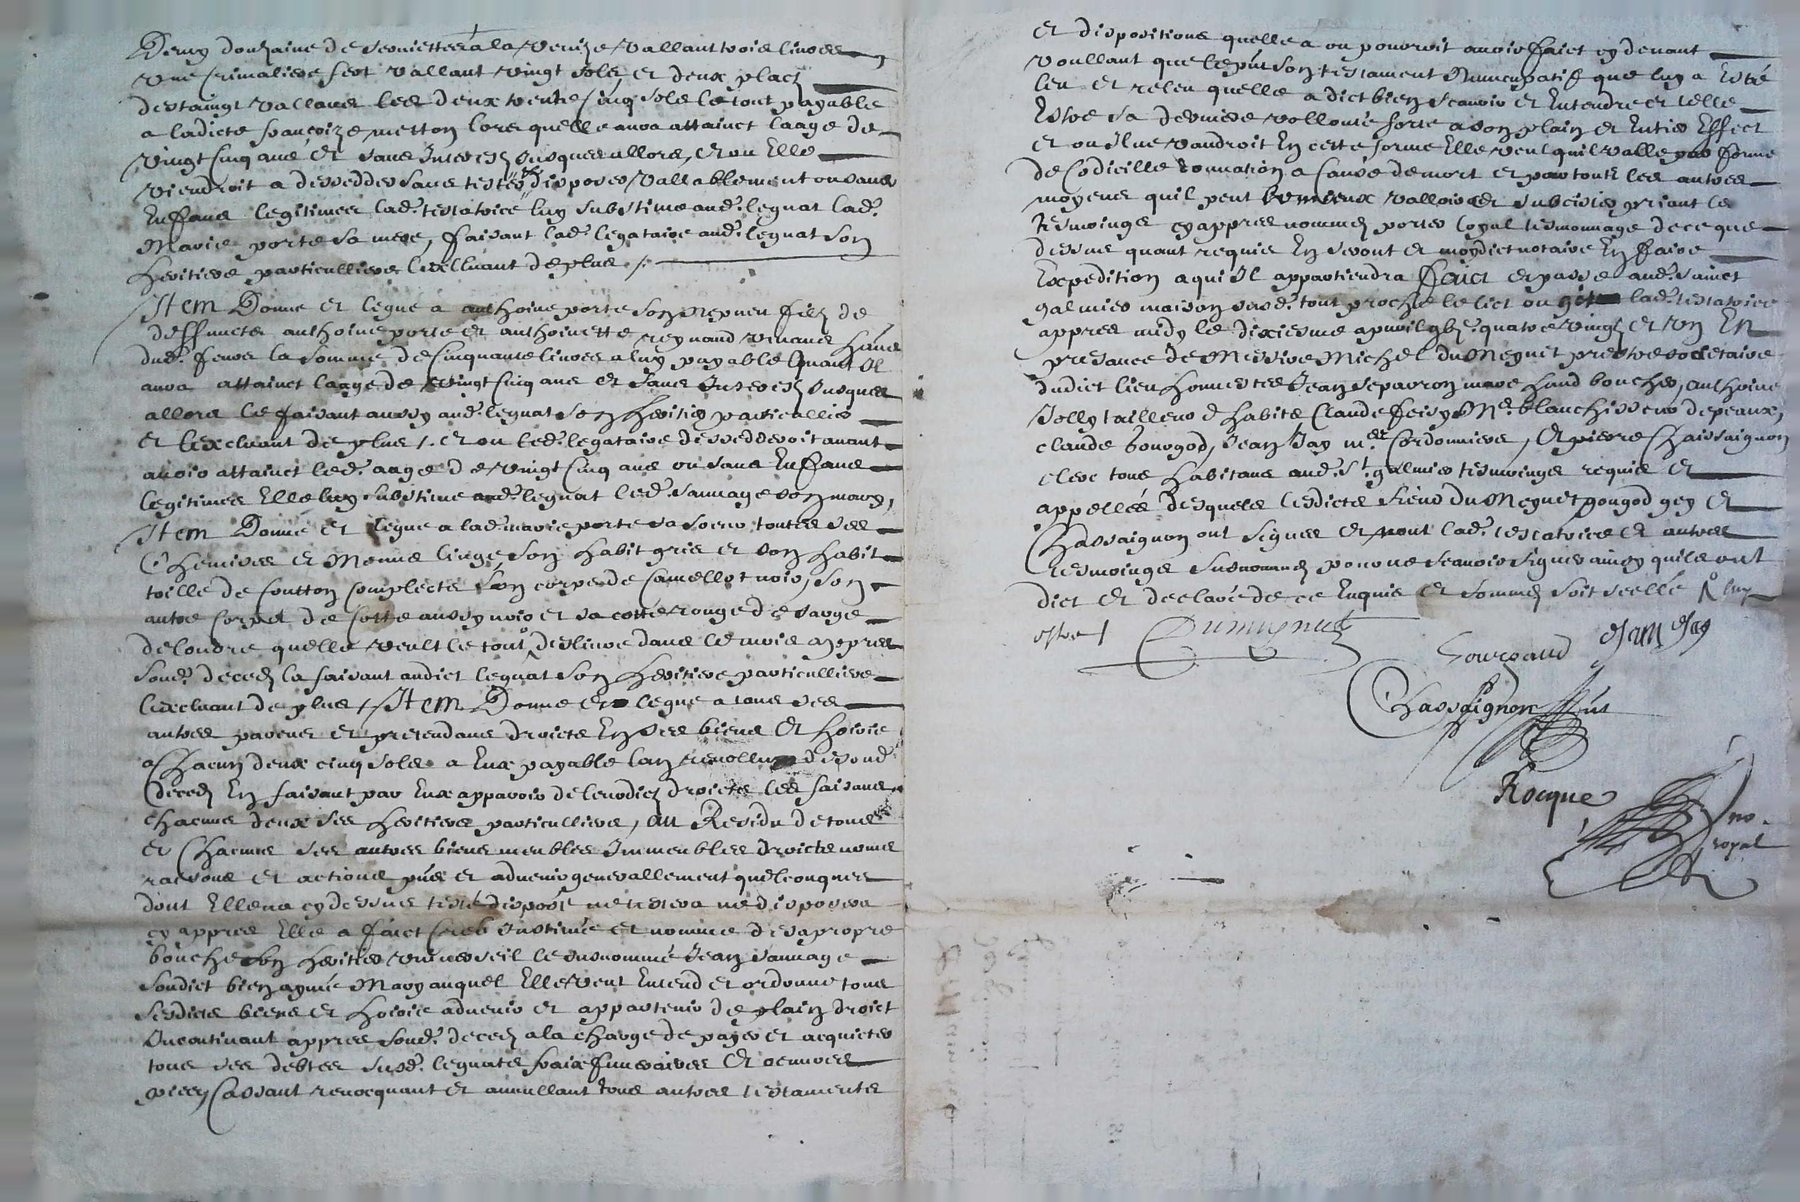 Demy douzaine de serviettes a la Venize vallant trois livres
Une crimaliere fert vallant vingt sols, et deux placz
destaingt vallans les deux trente cinq sols le tout payable
a ladicte françoize metton lors quelle aura attainct laage de
vingt cinq ans et sans Interestz Jusques allors, et ou Elle
viendroit a desceder sans tester disposer vallablement ou sans
Enffans legitimes lad. testatrice luy substitue aud. legnat lad.
Marie porte sa mere, faisant lad. legataire aud. legnat son
heritiere particulliere lexcluant de plus /:
Item Donne et legue a anthoine porte son nepveu filz de
deffuncts anthoine porte et anthoinette reynaud vivans
dud. la somme de Cinquante livres a luy payable quant Il
aura attainct laage de vingt cinq ans et sans Interestz Jusques
allors le faisant aussy aud. legnat son heritier particullier
et lexcluant de plus /. et ou led. legataire descedderoit avant
avoir attainct led. aage de vingt cinq ans ou sans Enffans
legitimes Elle luy substitue aud. legnat led. sauvage son mary,
Item Donne et legue a lad. marie porte sa soeur toutes ses
Chemises et Menus linge, son habit gris et son habit
toille de coutton complectz son corps de camellot noir, son
autre corps de cotte aussy noir et sa cotte rouge de sarge
de londre quelle veult le tout deslivre dans le mois appres
sond. decedz la faisant audict legnat son heritiere particulliere
lexcluant de plus / Item Donne et legue a tous ses
autres parens et pretendans droictz En ses biens et hoirie
a Chacun deux cinq sols a Eux payable lan revollu de sond.
decedz En faisant par Eux apparoir de leursdictz droictz les faisans
chacuns deux ses heritiers particulliers, Au Residu de tous
et Chacuns ses autres biens meubles Immeubles droictz noms
raisons et actions pñs et advenir generallement quelconques
dont Elle na cy dessus testé disposé ne testera ne disposera
cy appres Elle a faict Creé Institué et nommé de sa propre
bouche son heritier universeil le susnommé Jean sauvage
sondict bien aymé Mary auquel Elle veut Entend et ordonne tous
sesdicts biens et hoirie advenir et appartenir de plain droict
Incontinant appres sond. decedz a la charge de payer et acquicter
tous ses debtes susd. legnats fraix funeraires et oeuvres
pies, Cassant revocquant et annullant tous autres testaments
et dispositions quelle a ou pourroit avoir faict cy devant
voullant que le pñt son testament Nunncupatif que luy a Esté
leu et releu quelle a dict bien scavoir et Entendre et telle
Estre sa derniere vollonté sorte a son plain et Entier Effect
et ou Il ne vaudroit En ceste forme Elle veut quil valle par forme
de Codicille donnation a cause de mort et par toutz les autres
moyens quil peut mieux valloir et subcister priant les
tesmoings cy appres nommez porter loyal tesmonnage de ce que
dessus quant requis En seront et moydict notaire En faire
Expedition a qui Il appartiendra faict et passe aud. sainct
galmier maison susd. tout proche le lict ou lad. testatrice
appres midy le dixiesme apvril quatre vingtz et un En
presance de Messire Michel dumeynit prestre societaire
dudict lieu honnestes Jean separron marchand boucher, anthoine
Jolly tailleur d habits Claude feizy Me. blanchisseur de peaux,
claude bourgod, Jean Jay Me Cordonniers, et pierre Chaissaignon
clerc tous habitans aud. St. galmier tesmoings requis et
appellés desquels lesdicts sieur Dumeynit gougod gey et
Chassaignon ont signes et nont lad. testatrice et autres
tesmoings susnommez pour ne scavoir signer ainsy quils ont
dict et declaré de ce Enquis et sommez soit seellé
estre /
Dumignet
Gourgaud Jean Jay
Chassaignon pñt
Rocque
no.
royal